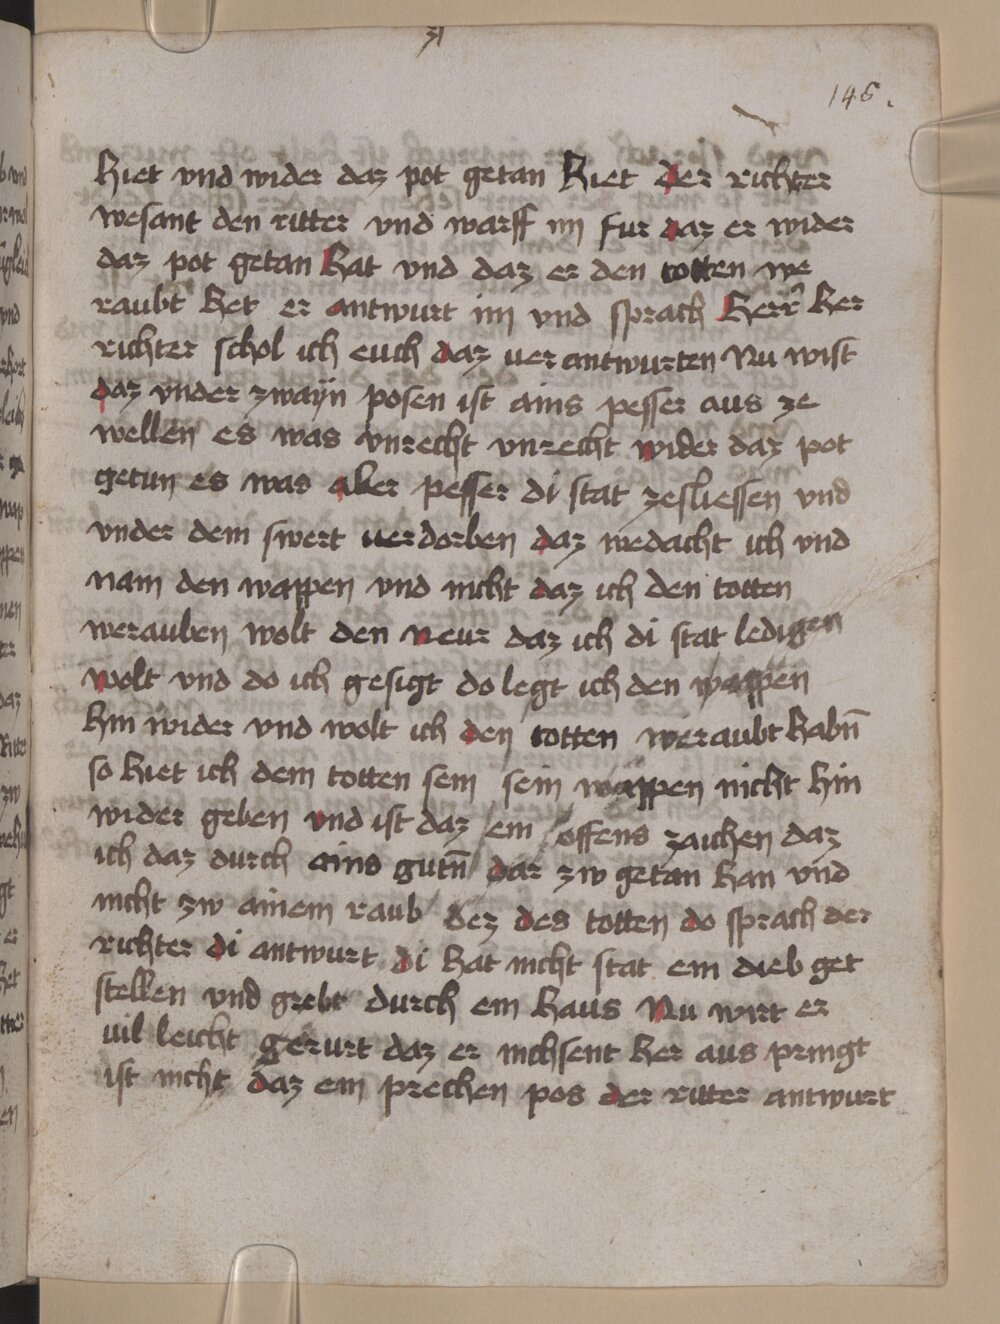 146.
hiet vnd wider daz pot getan hiet der richter
wesant den ritter vnd warff im fur daz er wider
daz pot getan hat vnd daz er den totten we
raubt het er antwurt im vnd sprach herr her
richter schol ich euch daz uer antwurten Nu wist
daz vnder zwayn posen ist ains pesser aus ze
wellen es was vnrecht vnrecht wider daz pot
getun es was aber pesser di stat zesliessen vnd
vnder dem swert uerdorben daz wedacht ich vnd
nam den wappen vnd nicht daz ich den totten
werauben wolt den neur daz ich di stat ledigen
wolt vnd do ich gesigt do legt ich den wappen
hin wider vnd wolt ich den totten weraubt habn̄
so hiet ich dem totten sein sein wappen nicht hin
wider geben vnd ist daz / ein / offens zaichen daz
ich daz durch ains gutn̄ / dar zw getan han vnd
nicht zw ainem raub / dez des totten do sprach der
richter di antwurt di hat nicht stat ein dieb get
stellen vnd grebt durch ein haus Nu wirt er
uil leicht gerurt daz er nichsent her aus pringt
ist nicht daz ein prechen pos der ritter antwurt